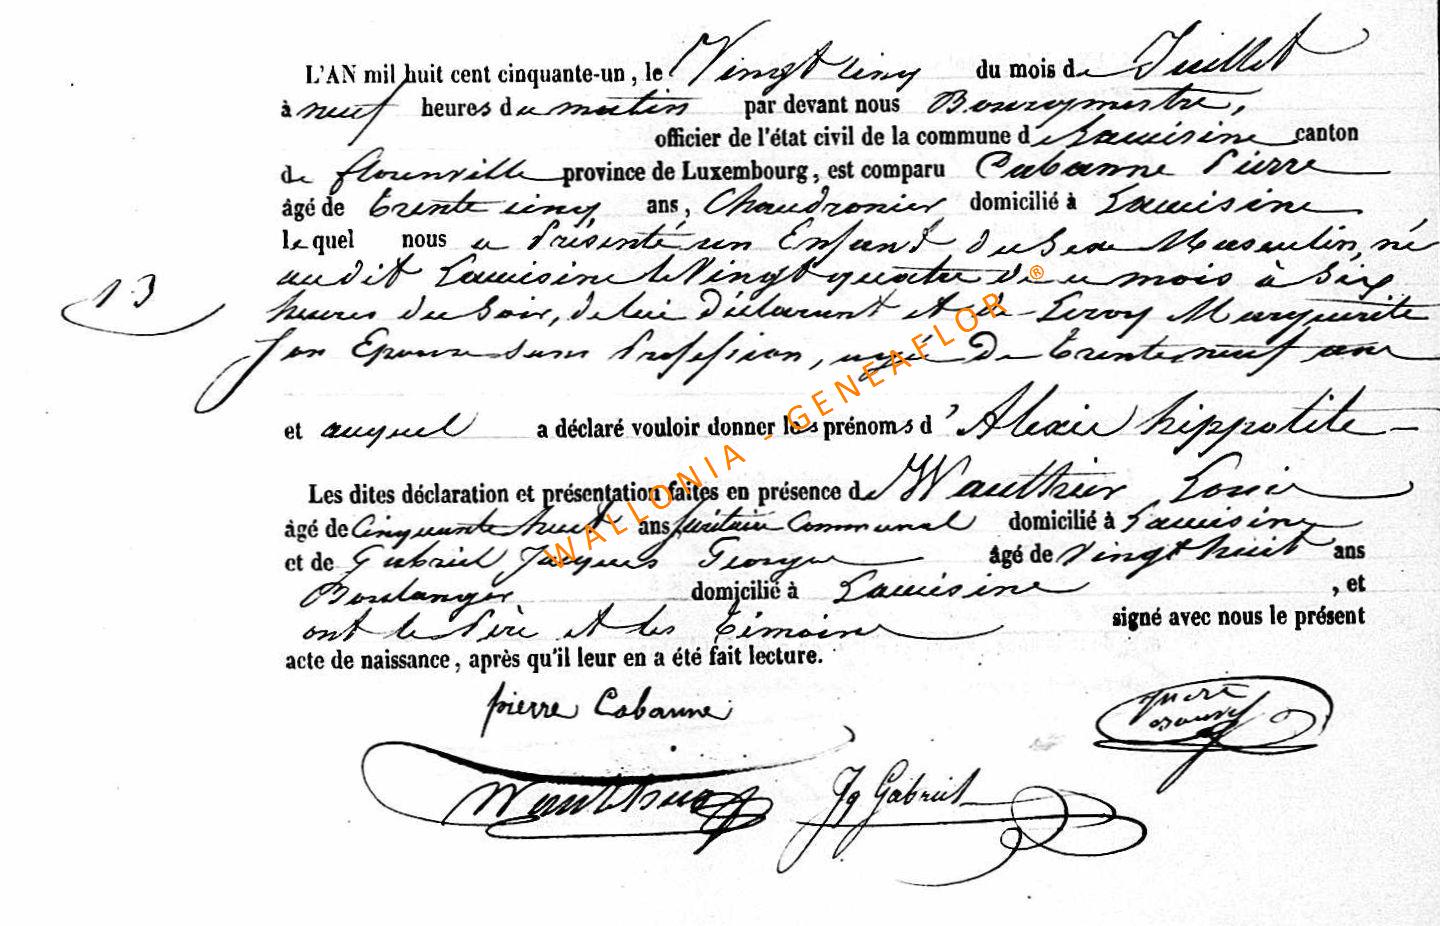 L'AN mil huit cent cinquante-un, le Vingt cinq du mois de Juillet
à neuf heures du matin par devant nous Bourgmestre,
officier de l'état civil de la commune de Lacuisine canton
de florenville province de Luxembourg, est comparu Cabanne Pierre
âgé de trente cinq ans, Chaudronier domicilié à Lacuisine
lequel nous a Présenté un Enfant du Sexe Masculin, né
audit Lacuisine le Vingt quatre de ce mois à Six
13
heures du Soir, de lui déclarant et de Leroy Marguerite
Son Epouse sans Profession, agée de trente neuf ans
et auquel a déclaré vouloir donner les prénoms d'Alexis hippolite
Les dites déclaration et présentation faites en présence de Wautthier Louis
âgé de Cinquante huit ans Communal domicilié à Lacuisine
et de Gabriel Jacques George âgé de Vingt huit ans
Boulanger domicilié à Lacuisine, et
ont le Père et les Témoins signé avec nous le présent
acte de naissance, après qu'il leur en a été fait lecture.
pierre Cabanne
Wautthier
Jq Gabriel
WALLONIA - GENEAFLOR ®